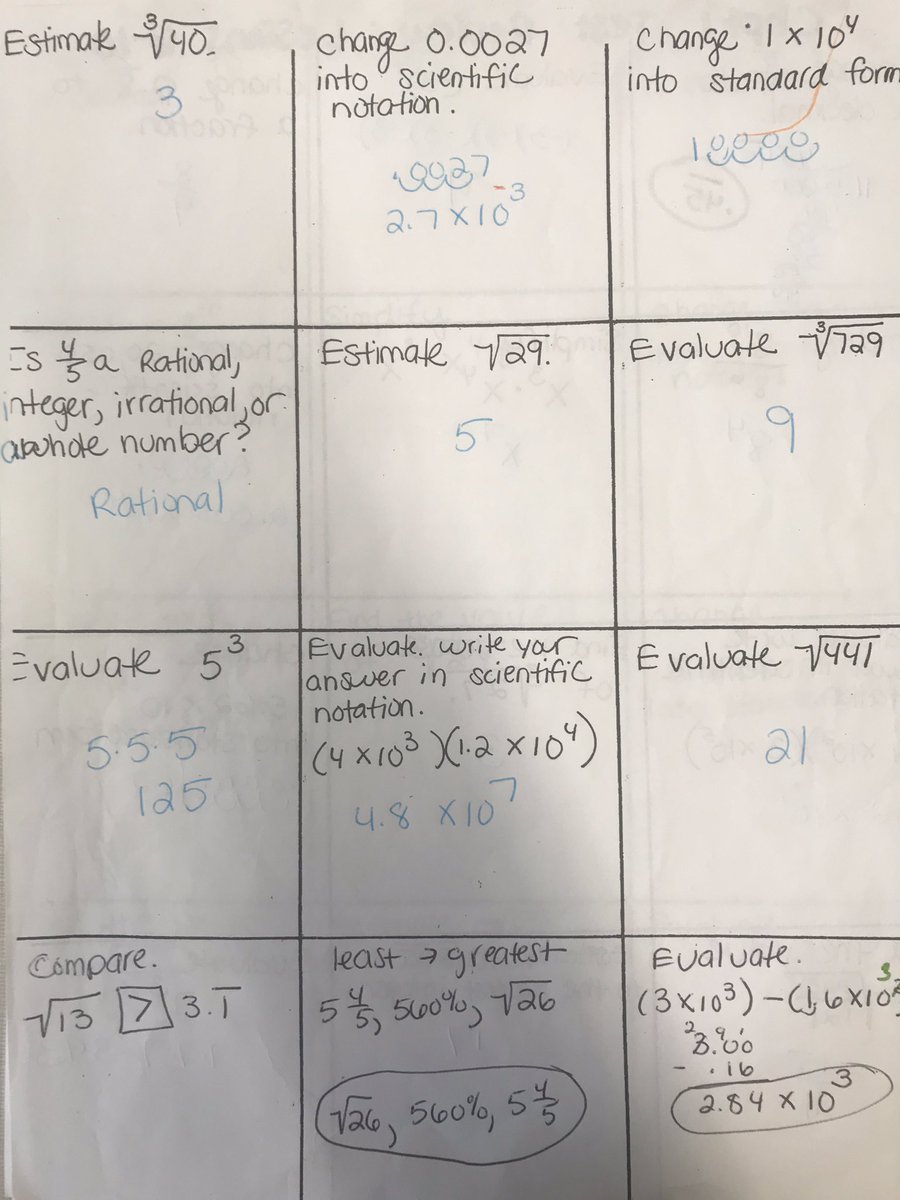 Estimate ∛40.
3
change 0.0027
into scientific
notation.
.0027
2.7 × 10⁻³
change 1 × 10⁴
into standard form
10000
Is 4/5 a Rational,
integer, irrational, or
a whole number?
Rational
Estimate √29.
5
Evaluate ∛729
9
Evaluate 5³
5·5·5
125
Evaluate. write your
answer in scientific
notation.
(4 ×10³)(1.2 × 10⁴)
4.8 × 10⁷
Evaluate √441
21
Compare.
√13 > 3.1̅
least → greatest
5 4/5, 560%, √26
√26, 560%, 5 4/5
Evaluate.
(3 ×10³) – (1.6 ×10²
3
3.00
2 9 1
- .16
2.84 × 10³